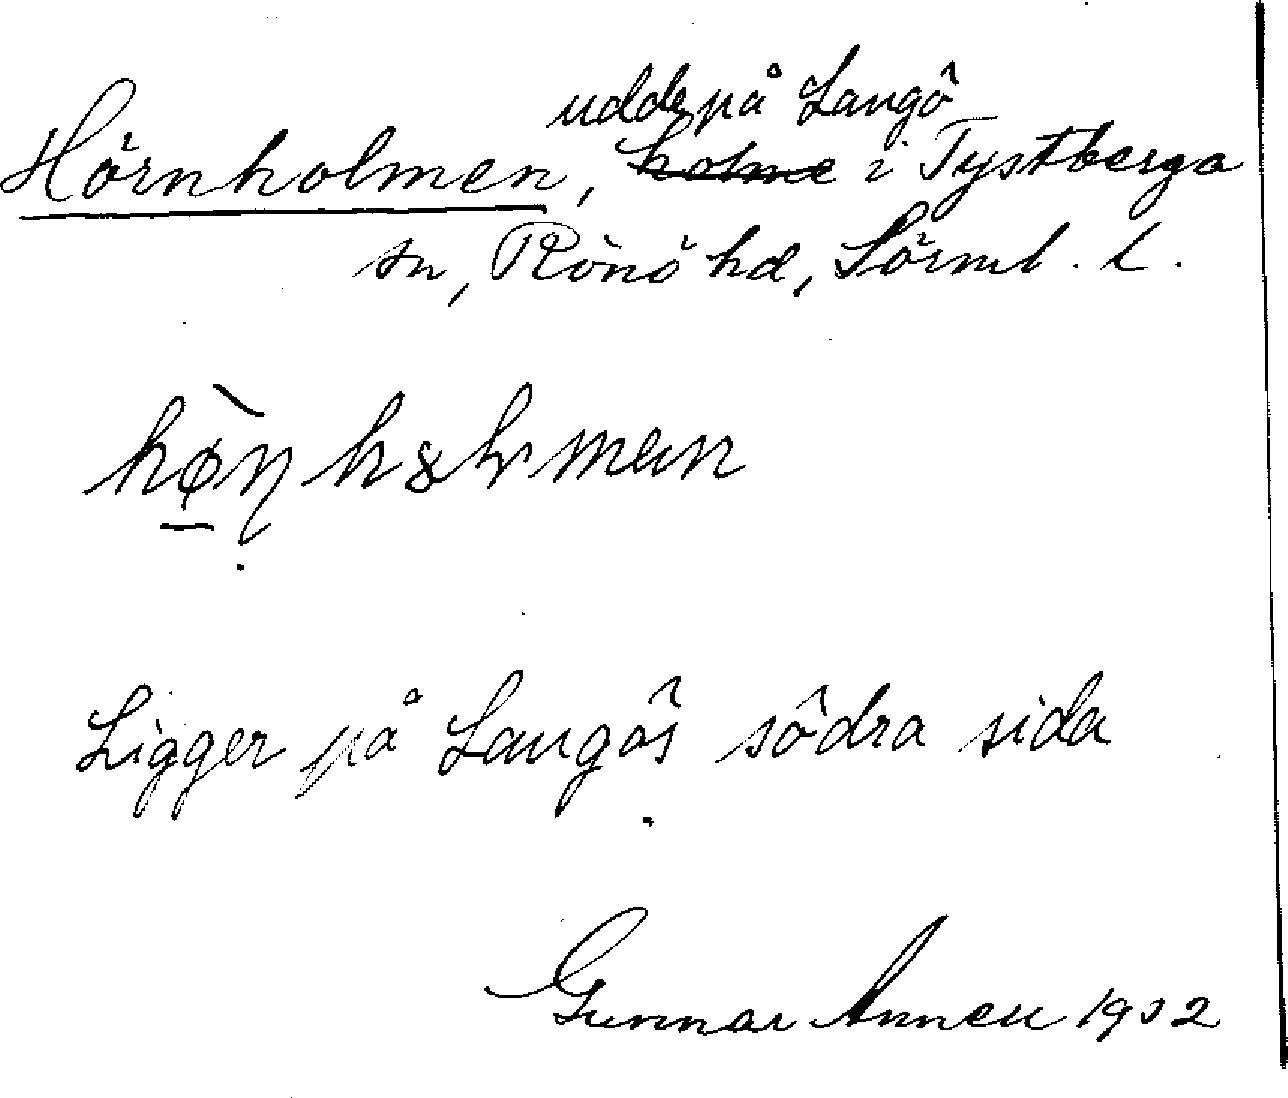 udde på Langö
Hörnholmen, holme i Tystberga
sn, Rönö hd, Sörml. l.
Ligger på Langös södra sida
Gunnar 1932